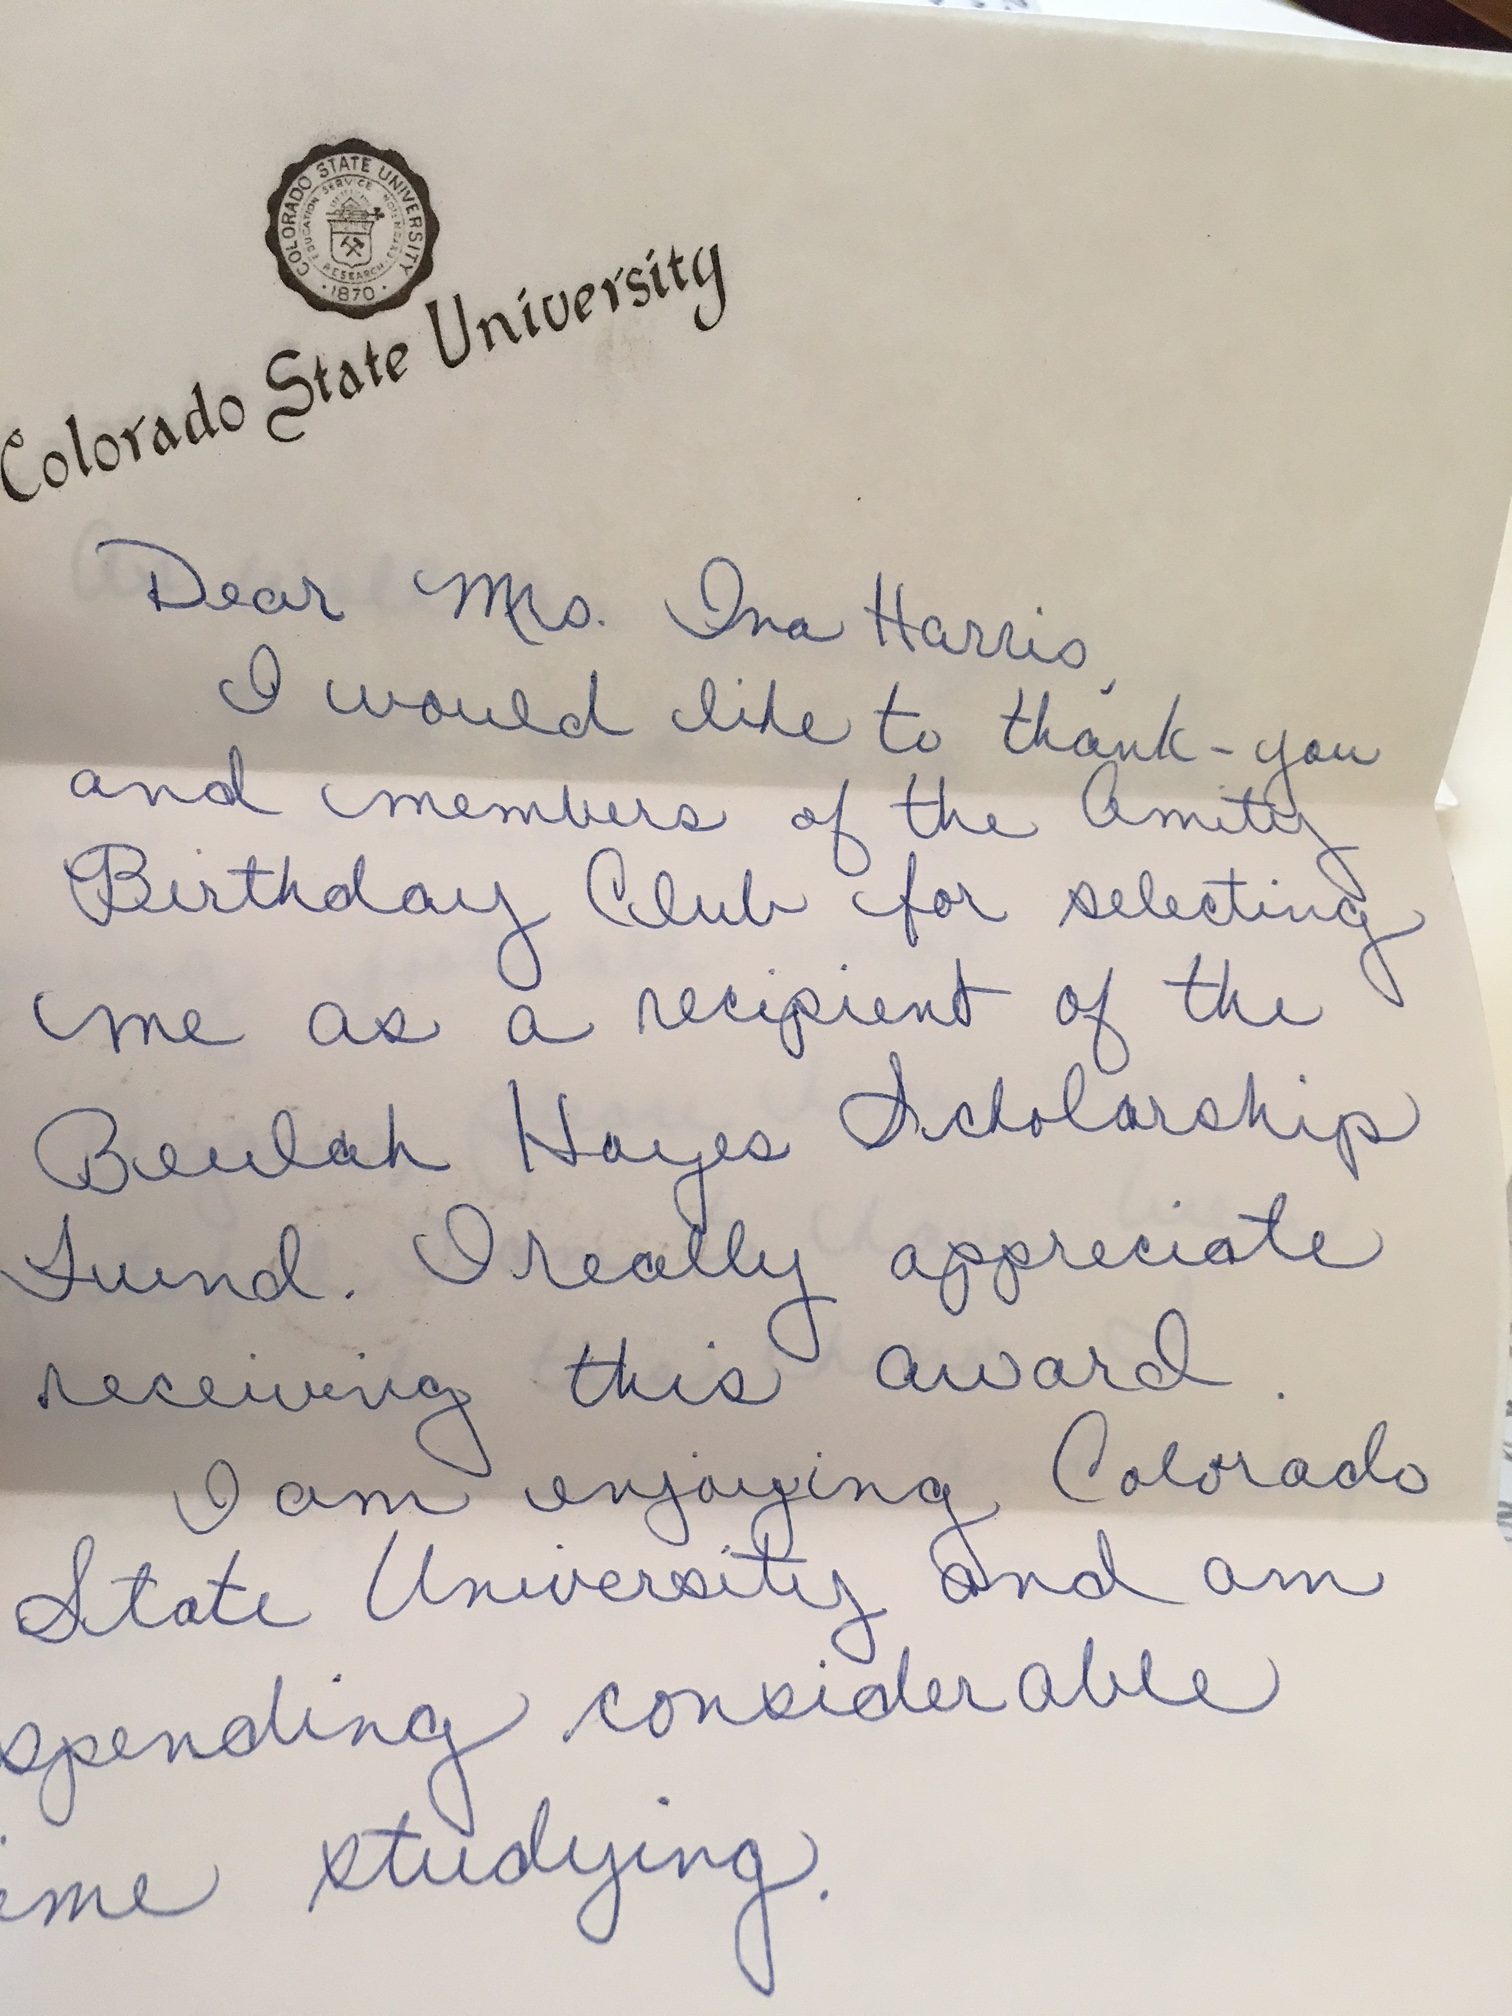 COLORADO STATE UNIVERSITY
SERVICE
EDUCATION
RESEARCH
1870
Colorado State University
Dear Mrs. Ina Harris,
I would like to thank-you
and members of the Amity
Birthday Club for selecting
me as a recipient of the
Beulah Hayes Scholarship
Fund. I really appreciate
receiving this award.
I am enjoying Colorado
State University and am
spending considerable
ime studying.